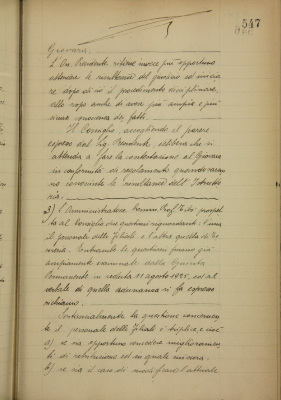 547
Giovara.
L'On. Presidente ritiene invece più opportuno
attendere le risultanze del giudizio ed iniziare
dopo di ciò il procedimento disciplinare,
allo scopo anche di avere più ampia e più
sicura conoscenza dei fatti.
Il Consiglio, accogliendo il parere
espresso dal Sig. Presidente, delibera che si
attenda a fare la contestazione al Giovara
in conformità al regolamento quando saranno
conosciute le risultanze dell'Istruttoria.
3) L'Amministratore Comm. Prof. prospetta
al Consiglio due questioni riguardanti l'una
il personale delle Filiali e l'altra quella di
Entrambe le questioni furono già
ampiamente esaminate dalla Giunta
Permanente in seduta 11 agosto 1925, ed al
verbale di quella adunanza si fa espresso
richiamo.
Sostanzialmente la questione concernente
il personale delle Filiali è triplice, e cioè
a) se sia opportuno concedere miglioramenti
di retribuzione ed in quale misura.
b) se sia il caso di modificare l'attuale